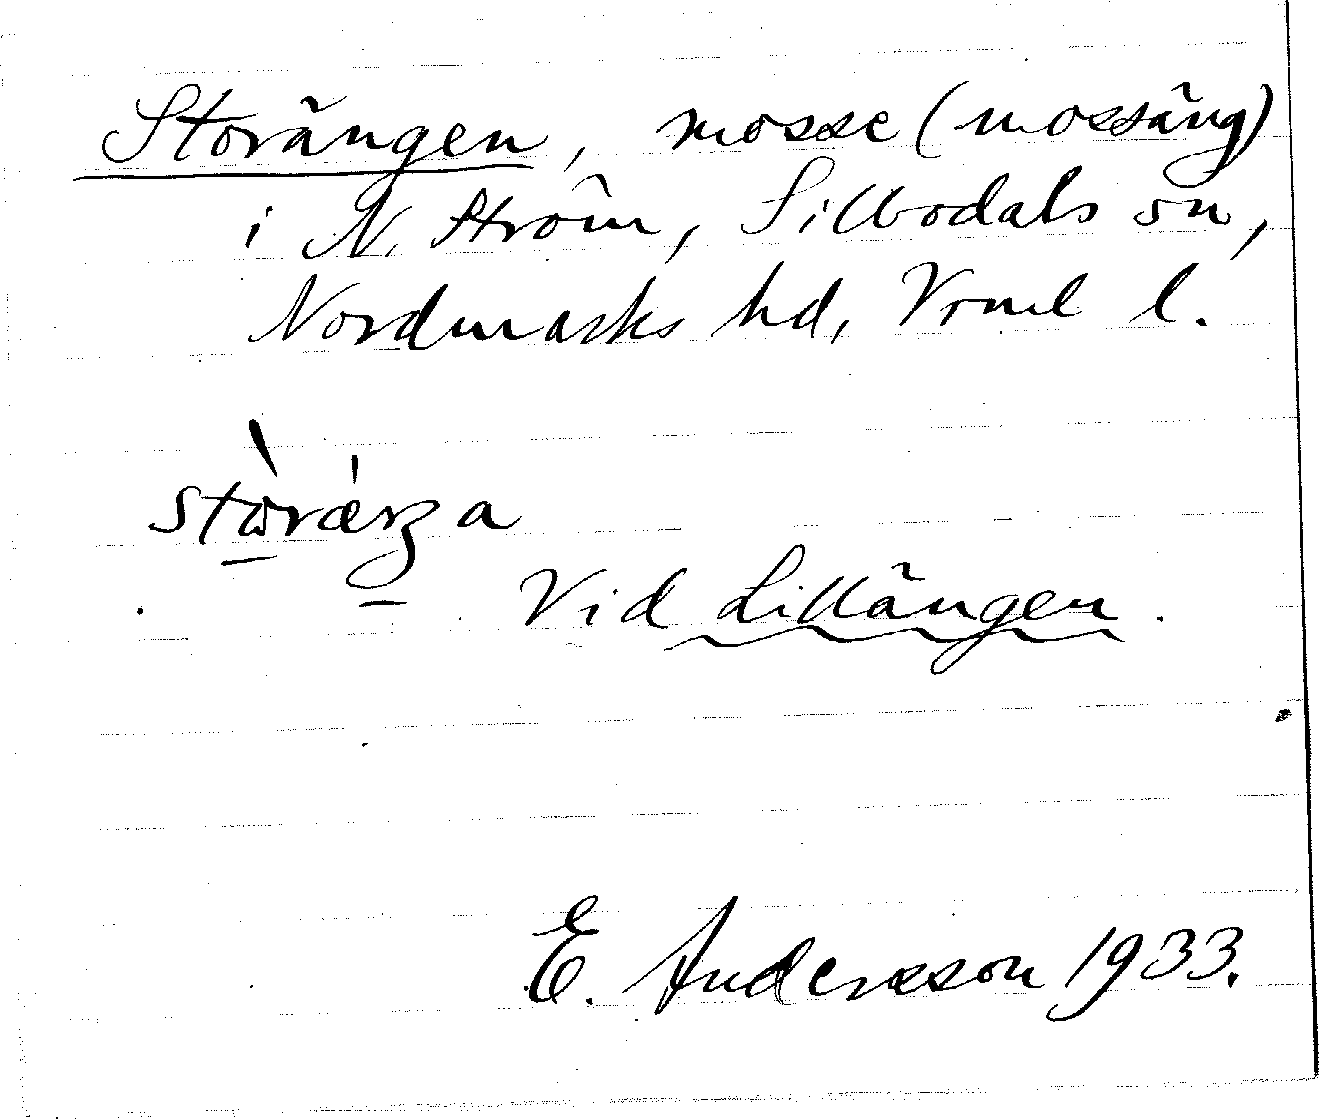 Storängen, mosse (mossäng)
i N. Ström, Silbodals sn,
Nordmarks hd, Vrml l.
Vid Lillängen.
E. Andersson 1933.